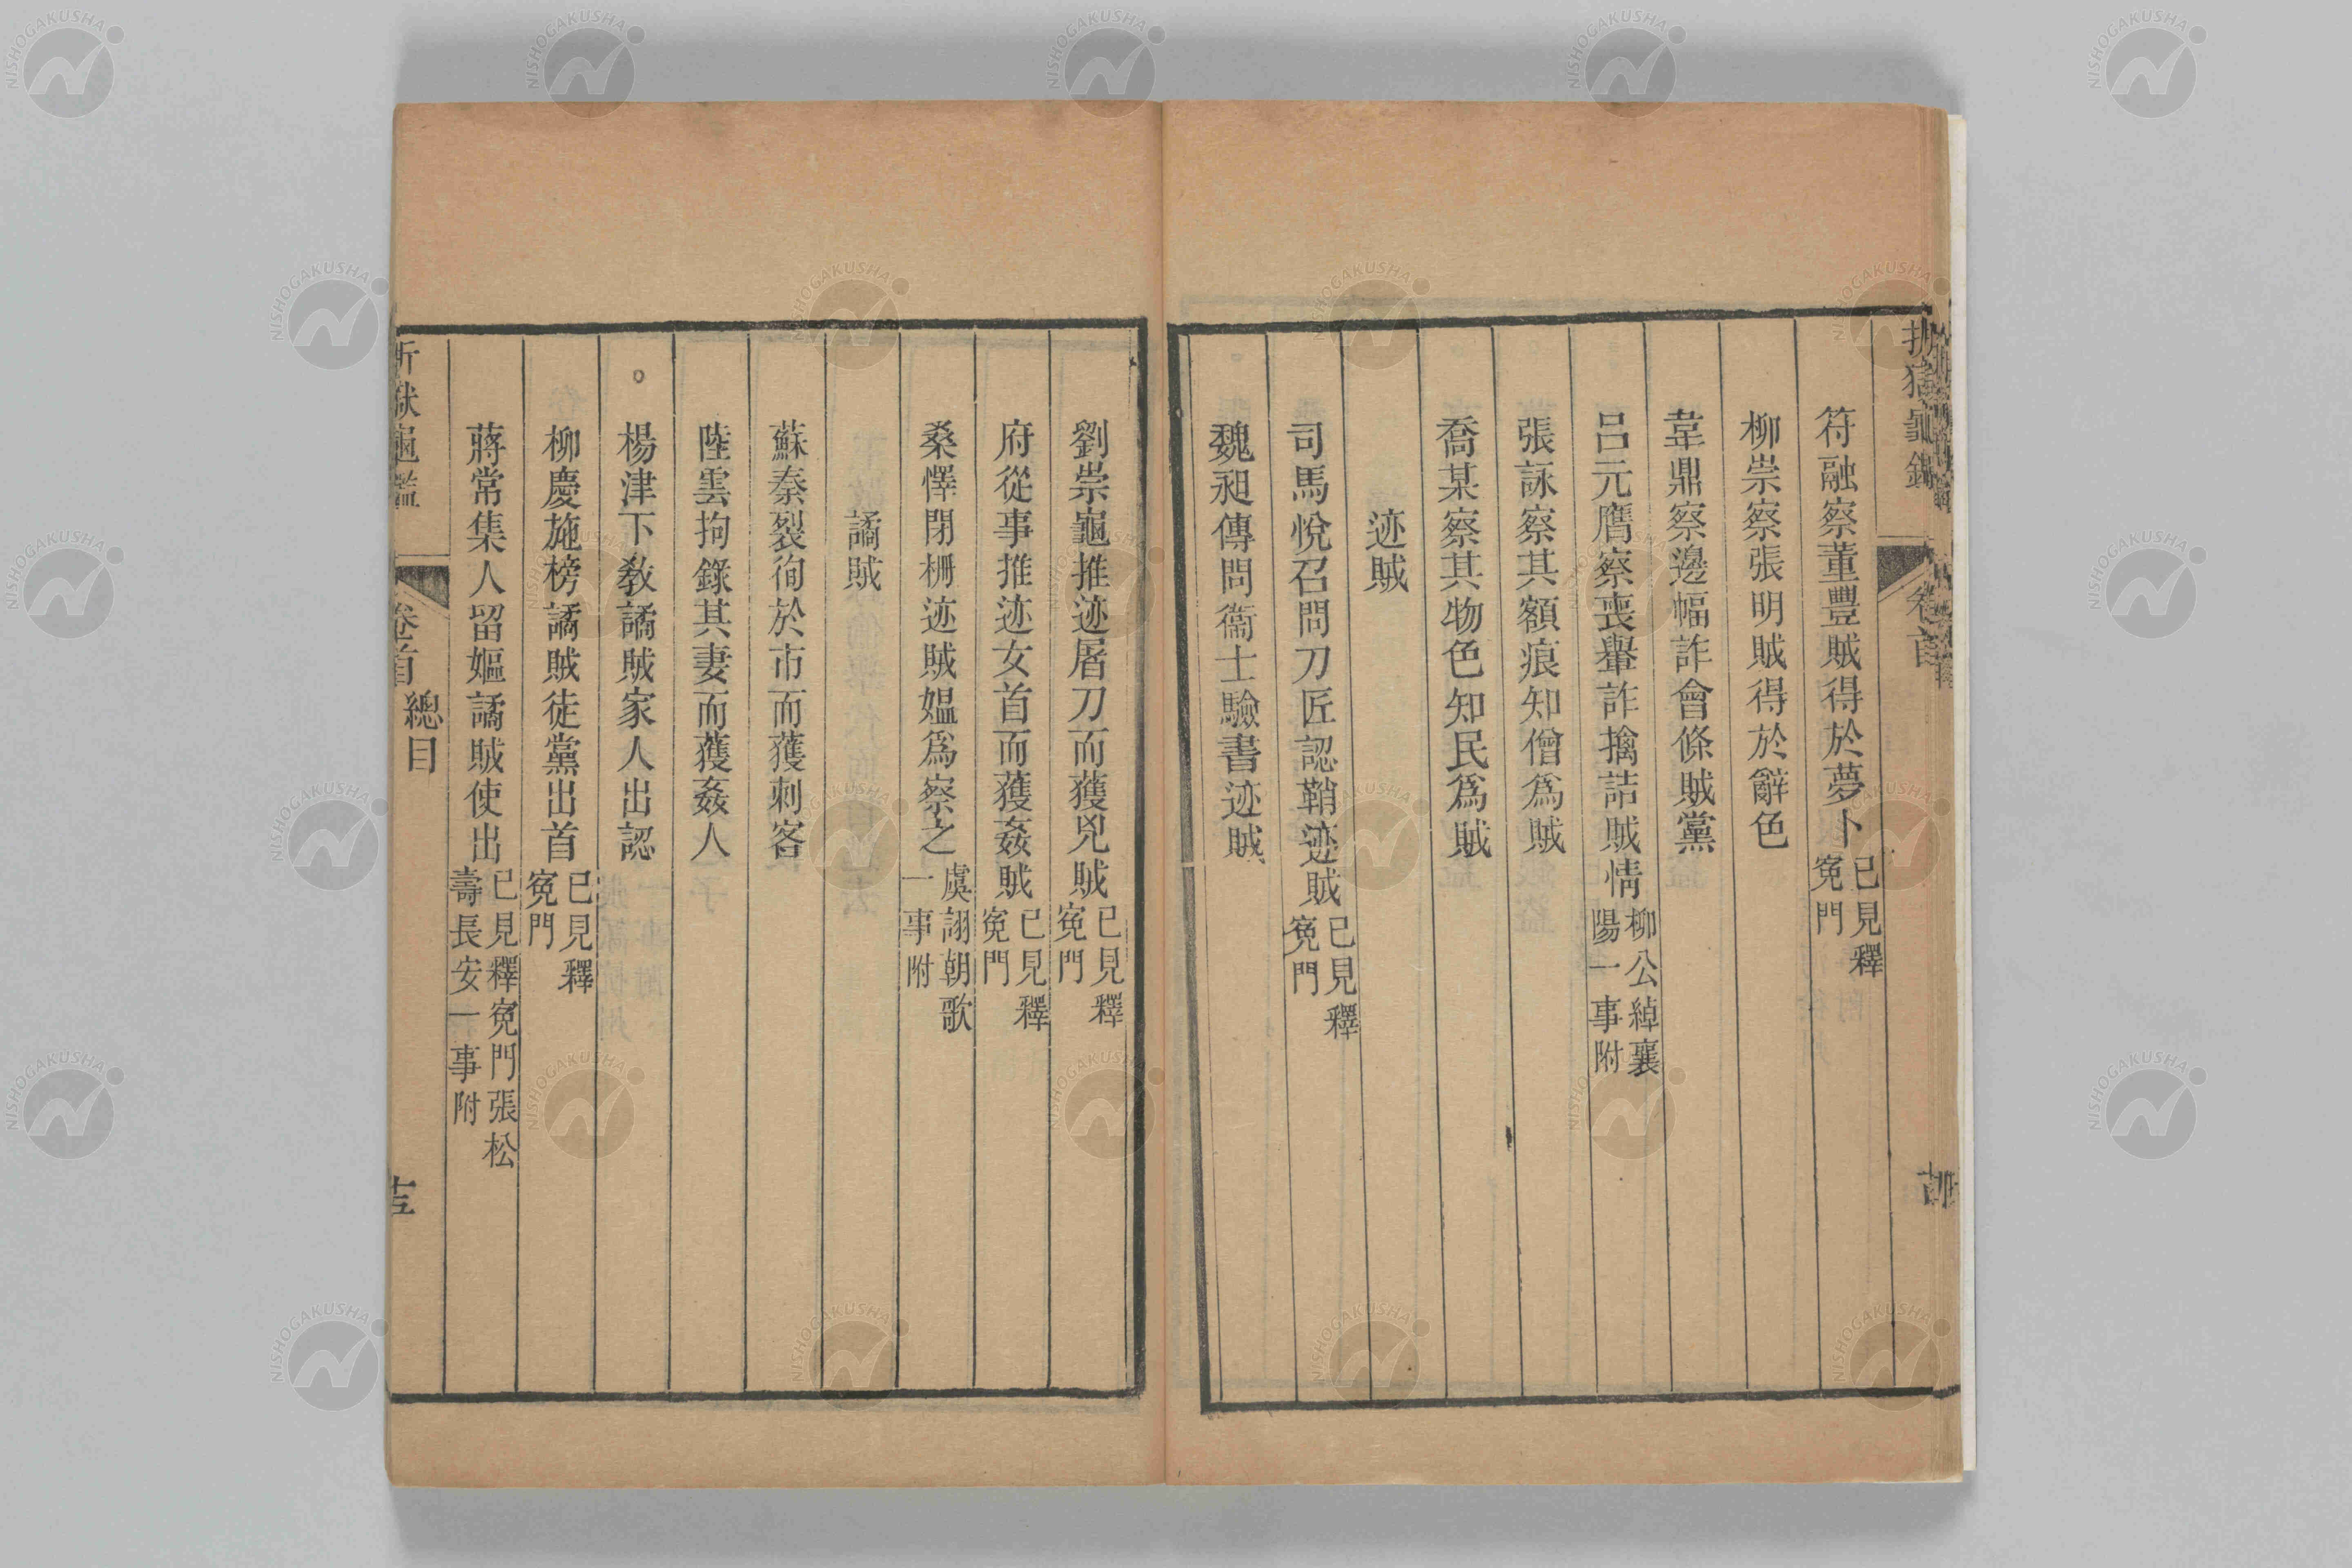 符融察董豐賊得於夢卜已見釋寃門
柳崇察張明賊得於辭色
韋鼎察邊幅詐會條賊黨
呂元膺察喪轝詐擒詰賊情柳公綽襄陽一事附
張詠察其額痕知僧爲賊
喬某察其物色知民爲賊
迹賊
司馬悅召問刀匠認鞘迹賊已見釋寃門
魏昶傳問衞士驗書迹賊
劉崇龜推迹屠刀而獲兇賊已見釋寃門
府從事推迹女首而獲姦賊已見釋寃門
桑懌閉柵迹賊媼爲察之虞詡朝歌一事附
譎賊
蘇秦裂徇於市而獲刺客
陸雲拘錄其妻而獲姦人
楊津下敎譎賊家人出認
柳慶施榜譎賊徒黨出首已見釋寃門
蔣常集人留嫗譎賊使出已見釋寃門張松壽長安一事附
折獄龜鑑 卷首 總目 十五
NISHOGAKUSHA